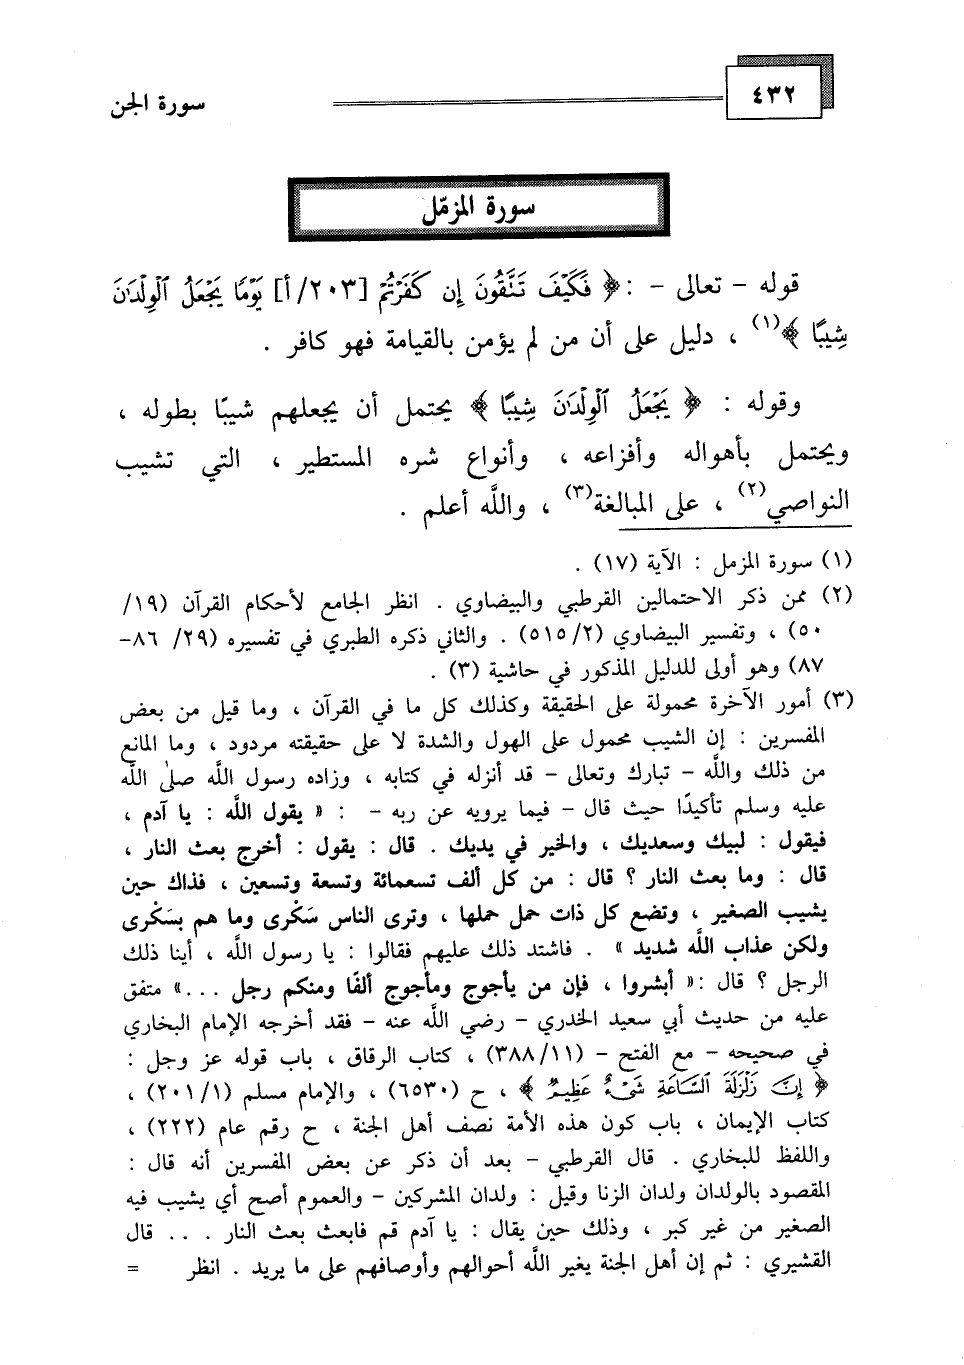 ٤٣٢
سورة الجن
سورة المزمّل
قوله - تعالى - : ﴿ فَكَيْفَ تَتَّقُونَ إِن كَفَرْتُمْ [٢٠٣/أ] يَوْمًا يَجْعَلُ ٱلْوِلْدَٰنَ
شِيبًا ﴾(١) ، دليل على أن من لم يؤمن بالقيامة فهو كافر .
وقوله : ﴿ يَجْعَلُ ٱلْوِلْدَٰنَ شِيبًا ﴾ يحتمل أن يجعلهم شيبًا بطوله ،
ويحتمل بأهواله وأفزاعه ، وأنواع شره المستطير ، التي تشيب
النواصي(٢) ، على المبالغة(٣) ، واللَّه أعلم .
(١) سورة المزمل : الآية (١٧) .
(٢) ممن ذكر الاحتمالين القرطبي والبيضاوي . انظر الجامع لأحكام القرآن (١٩/
٥٠) ، وتفسير البيضاوي (٥١٥/٢) . والثاني ذكره الطبري في تفسيره (٢٩/ ٨٦-
٨٧) وهو أولى للدليل المذكور في حاشية (٣) .
(٣) أمور الآخرة محمولة على الحقيقة وكذلك كل ما في القرآن ، وما قيل من بعض
المفسرين : إن الشيب محمول على الهول والشدة لا على حقيقته مردود ، وما المانع
من ذلك واللَّه - تبارك وتعالى - قد أنزله في كتابه ، وزاده رسول اللَّه صلى اللَّه
عليه وسلم تأكيدًا حيث قال - فيما يرويه عن ربه - : « يقول اللَّه : يا آدم ،
فيقول : لبيك وسعديك ، والخير في يديك . قال : يقول : أخرج بعث النار ،
قال : وما بعث النار ؟ قال : من كل ألف تسعمائة وتسعة وتسعين ، فذاك حين
يشيب الصغير ، وتضع كل ذات حمل حملها ، وترى الناس سَكْرى وما هم بسَكْرى
ولكن عذاب اللَّه شديد » . فاشتد ذلك عليهم فقالوا : يا رسول اللَّه ، أينا ذلك
الرجل ؟ قال :« أبشروا ، فإن من يأجوج ومأجوج ألفًا ومنكم رجل ...» متفق
عليه من حديث أبي سعيد الخدري - رضي اللَّه عنه - فقد أخرجه الإمام البخاري
في صحيحه - مع الفتح - (٣٨٨/١١) ، كتاب الرقاق ، باب قوله عز وجل :
﴿ إِنَّ زَلْزَلَةَ ٱلسَّاعَةِ شَىْءٌ عَظِيمٌ ﴾ ، ح (٦٥٣٠) ، والإمام مسلم (٢٠١/١) ،
كتاب الإيمان ، باب كون هذه الأمة نصف أهل الجنة ، ح رقم عام (٢٢٢) ،
واللفظ للبخاري . قال القرطبي - بعد أن ذكر عن بعض المفسرين أنه قال :
المقصود بالولدان ولدان الزنا وقيل : ولدان المشركين - والعموم أصح أي يشيب فيه
الصغير من غير كبر ، وذلك حين يقال : يا آدم قم فابعث بعث النار . .. قال
القشيري : ثم إن أهل الجنة يغير اللَّه أحوالهم وأوصافهم على ما يريد . انظر =